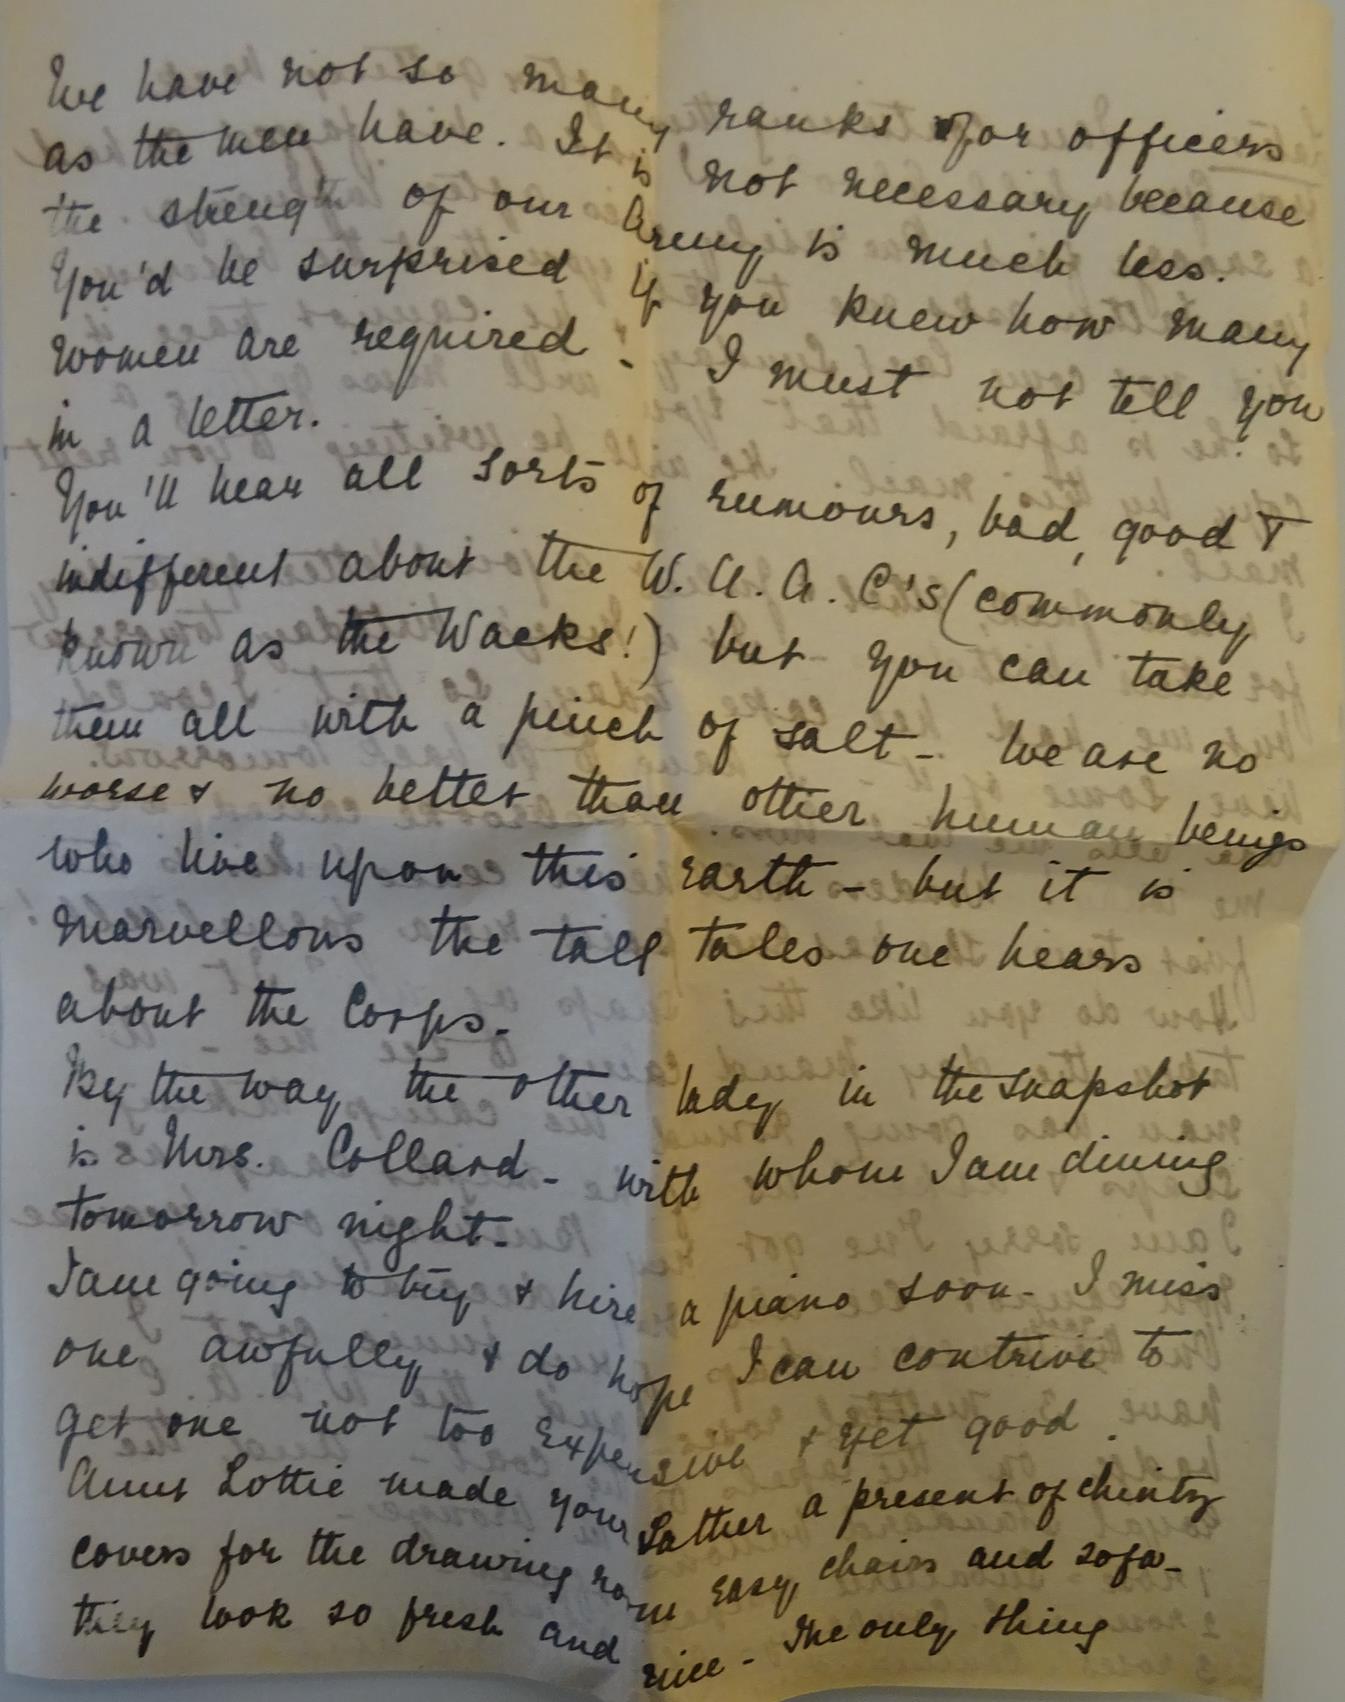 We have not so many ranks for officers
as the men have. It is not necessary because
the strength of our Army is much less.
You'd be surprised if you knew how many
women are required - I must not tell you
in a letter.
You'll hear all sorts of rumours, bad, good &
indifferent about the W.A.A.C's (commonly
known as the Wacks!) but you can take
them all with a pinch of salt - We are no
worse & no better than other human beings
who live upon this earth - but it is
marvellous the tall tales one hears
about the Corps.
By the way the other lady in the snapshot
is Mrs. Collard - with whom I am dining
tomorrow night -
I am going to try & hire a piano soon - I miss
one awfully & do hope I can contrive to
get one not too expensive & yet good.
Aunt Lottie made your father a present of chintz
covers for the drawing room easy chairs and sofa -
they look so fresh and nice - The only thing